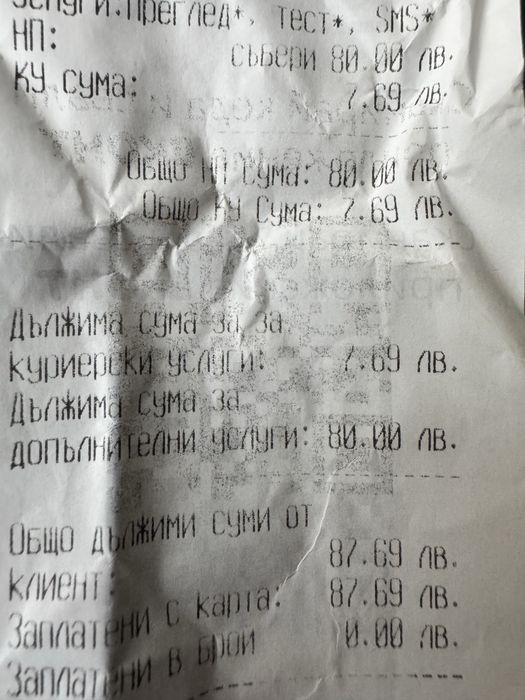 Услуги:Преглед*, тест*, SMS*
НП: събери 80.00 лв.
КУ сума: 7.69 лв.
Общо НП Сума: 80.00 лв.
Общо КУ Сума: 7.69 лв.
Дължима сума за за
куриерски услуги: 7.69 лв.
Дължима сума за
допълнителни услуги: 80.00 лв.
Общо дължими суми от
клиент: 87.69 лв.
Заплатени с карта: 87.69 лв.
Заплатени в брой 0.00 лв.